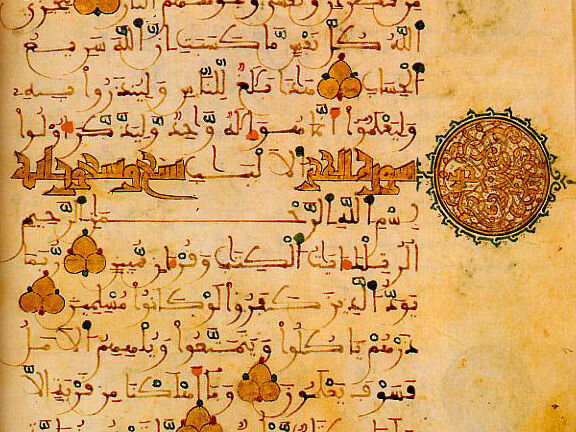 من قطران وتغشى وجوههم النار ليجزي
الله كل نفس ما كسبت إن الله سريع
الحساب هذا بلغ للناس ولينذروا به
وليعلموا أنما هو إله واحد وليذكر أولوا
سورة الحجر الألبب تسع وتسعون اية
بسم الله الرحمن الرحيم
الر تلك ءايت الكتب وقرءان مبين ربما
يود الذين كفروا لو كانوا مسلمين
ذرهم يأكلوا ويتمتعوا ويلههم الأمل
فسوف يعلمون وما أهلكنا من قرية إلا